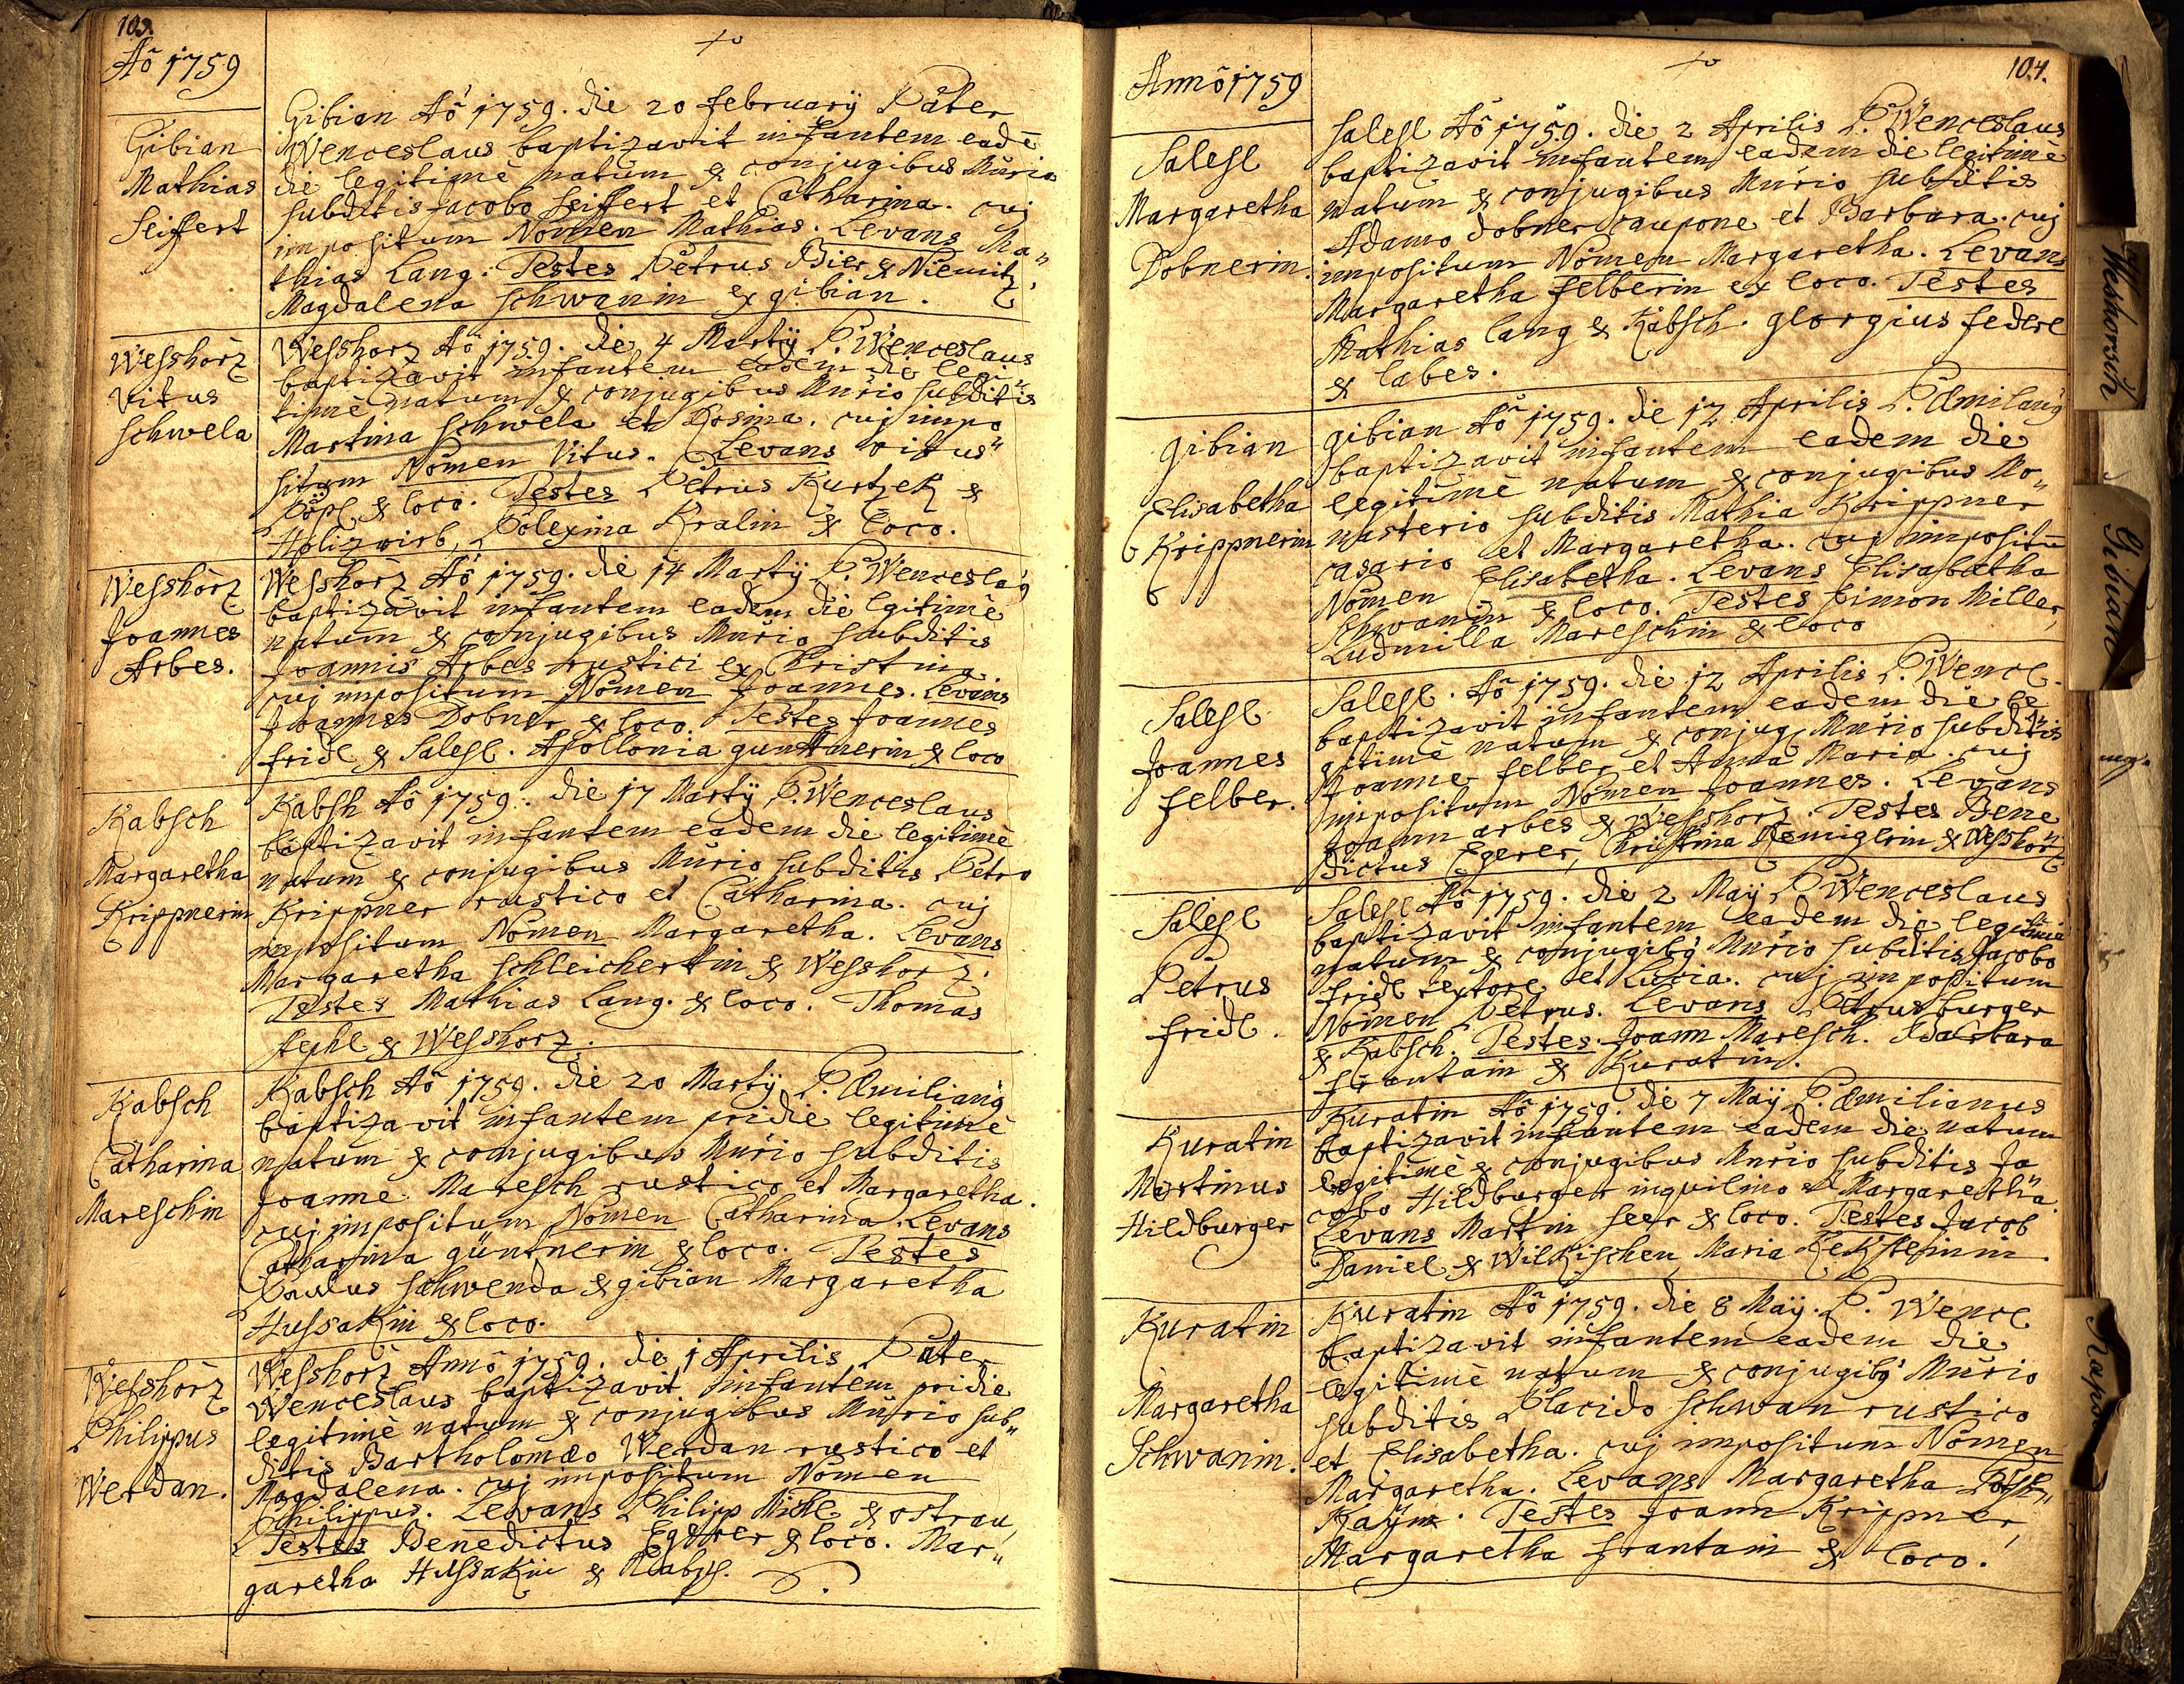 103.
Aõ 1759
Gibian
Mathias
Seiffert
Gibian Aõ 1759. die 20 february Pater
Wenceslaus baptizavit infantem eadē
die legitimè natum ex conjugibus Murio
subditis Jacobo Seiffert et Catharina. cuj
impositum Nomen Mathias. Levans Ma„
thias Lang. Testes Petrus Bier ex Niemitz,
Magdalena Schwanin ex gibian.
Wesshorz
Vitus
Schwela
Wesshorz Aõ 1759. die 4 Martÿ P. Wenceslaus
baptizavit infantem eadem die legi„
timè natum ex conjugibus Murio subditis
Martina Schwela et Rosina. cuj impo
situm Nomen Vitus. Levans vitus"
Pöpl ex loco. Testes Petrus Kurtzek ex
Holizwirb, Polexina Kralin ex loco.
Wesshorz
Joannes
Arbes.
Wesshorz Aõ 1759. die 14 Martÿ P. Wenceslaꝰ
baptizavit infantem eadem die lgitimè
natum ex conjugibus Murio subditis
Joannis Arbes rustici ex Christina.
cuj impositum Nomen Joannes. Levans
Joannes Dobner ex loco. Testes Joannes
fridl ex Salesl. Apollonia guntnerin ex loco
Kabsch
Margaretha
Krippnerin
Kabsh Aõ 1759. die 17 Martÿ P. Wenceslaus
baptizavit infantem eadem die legitimè
natum ex conjugibus Murio subditis Petro
Krippner rustico et Catharina. cuj
impositum Nomen Margaretha. Levans
Margaretha Schleichertin ex Wesshorz.
Testes Mathias Lang. ex loco. Thomas
stephl ex Wesshorz.
Kabsch
Catharina
Mareschin
Kabsch Aõ 1759. die 20 Martÿ P. Æmilianꝰ
baptizavit infantem pridie legitimè
natum ex conjugibus Murio subditis
Joanne Maresch rustico et Margaretha.
cuj impositum Nomen Catharina. Levans
Catharina güntnerin ex loco. Testes
Paulus Schwenda ex gibian Margaretha
Hussakin ex loco.
Wesshorz
Philippus
Werdan.
Wesshorz Annõ 1759. die 1 Aprilis Pater
Wenceslaus baptizavit infantem pridie
legitimè natum ex conjugibus Murio sub„
ditis Bartholomæo Werdan rustico et
Magdalena. cuj impositum Nomen
Philippus. Levans Philipp Michl ex ostrau,
Testes Benedictus Egerer ex loco. Mar„
garetha Hussakin ex Kabsch.
104.
Annõ 1759
Salesl
Margaretha
Dobnerin.
Salesl Aõ 1759. die 2 Aprilis P. Wenceslaus
baptizavit infantem eadem die legitimè
natum ex conjugibus Murio subditis
Adamo Dobner caupone et Barbara. cuj
impositum Nomen Margaretha. Levans
Margaretha felberin ex loco. Testes
Mathias Lang ex Kabsch. georgius federl
ex labes.
gibian
Elisabetha
Krippnerin
gibian Aõ 1759. die 12 Aprilis P. Æmilianꝰ
baptizavit infantem eadem die
legitimè natum ex conjugibus Mo„
nasterio subditis Mathia Krippner
casario et Margaretha. cuj impositū
Nomen Elisabetha. Levans Elisabetha
Schwanin ex loco. Testes Simon Miller,
Ludmilla Mareschin ex loco
Salesl
Joannes
felber.
Salesl. Aõ 1759. die 12 Aprilis P. Wencl.
baptizavit infantem eadem die le
gitimè natum ex conjug, Murio subditis
Joanne felber et Anna Maria. cuj
impositum Nomen Joannes. Levans
Joann arbes ex Wesshorz. Testes Bene
dictus Egerer, Christina Remiglerin ex Wesshorz
Salesl
Petrus
fridl.
Salesl Aõ 1759. die 2 Maÿ P. Wenceslaus
baptizavit infantem eadem die legitimè
natum ex conjugibꝰ Murio subditis Jacobo
fridl textore et Lucia. cuj impositum
Nomen Petrus. Levans Petrus burger
ex Kabsch. Testes Joann Maresch. Barbara
frantain ex Kuratin.
Kuratin
Martinus
Hildburger
Kuratin Aõ 1759. die 7 Maÿ P. Æmilianus
baptizavit infantem eadem die natum
legitimè ex conjugibus Murio subditis Ja
cobo Hildburger inquilino et Margaretha
Levans Martin seer ex loco. Testes Jacob
Daniel ex Wilkischen, Maria Keksteinin.
Kuratin
Margaretha
Schwanin.
Kuratin Aõ 1759. die 8 Maÿ. P. Wencl
baptizavit infantem eadem die
legitimè natum ex conjugibꝰ Murio
subditis Placido Schwan rustico
et Elisabetha. cuj impositum Nomen
Margaretha. Levans Margaretha
Testes Joann Krippner,
Margaretha frantain ex loco.
Weshorsch
Gibian